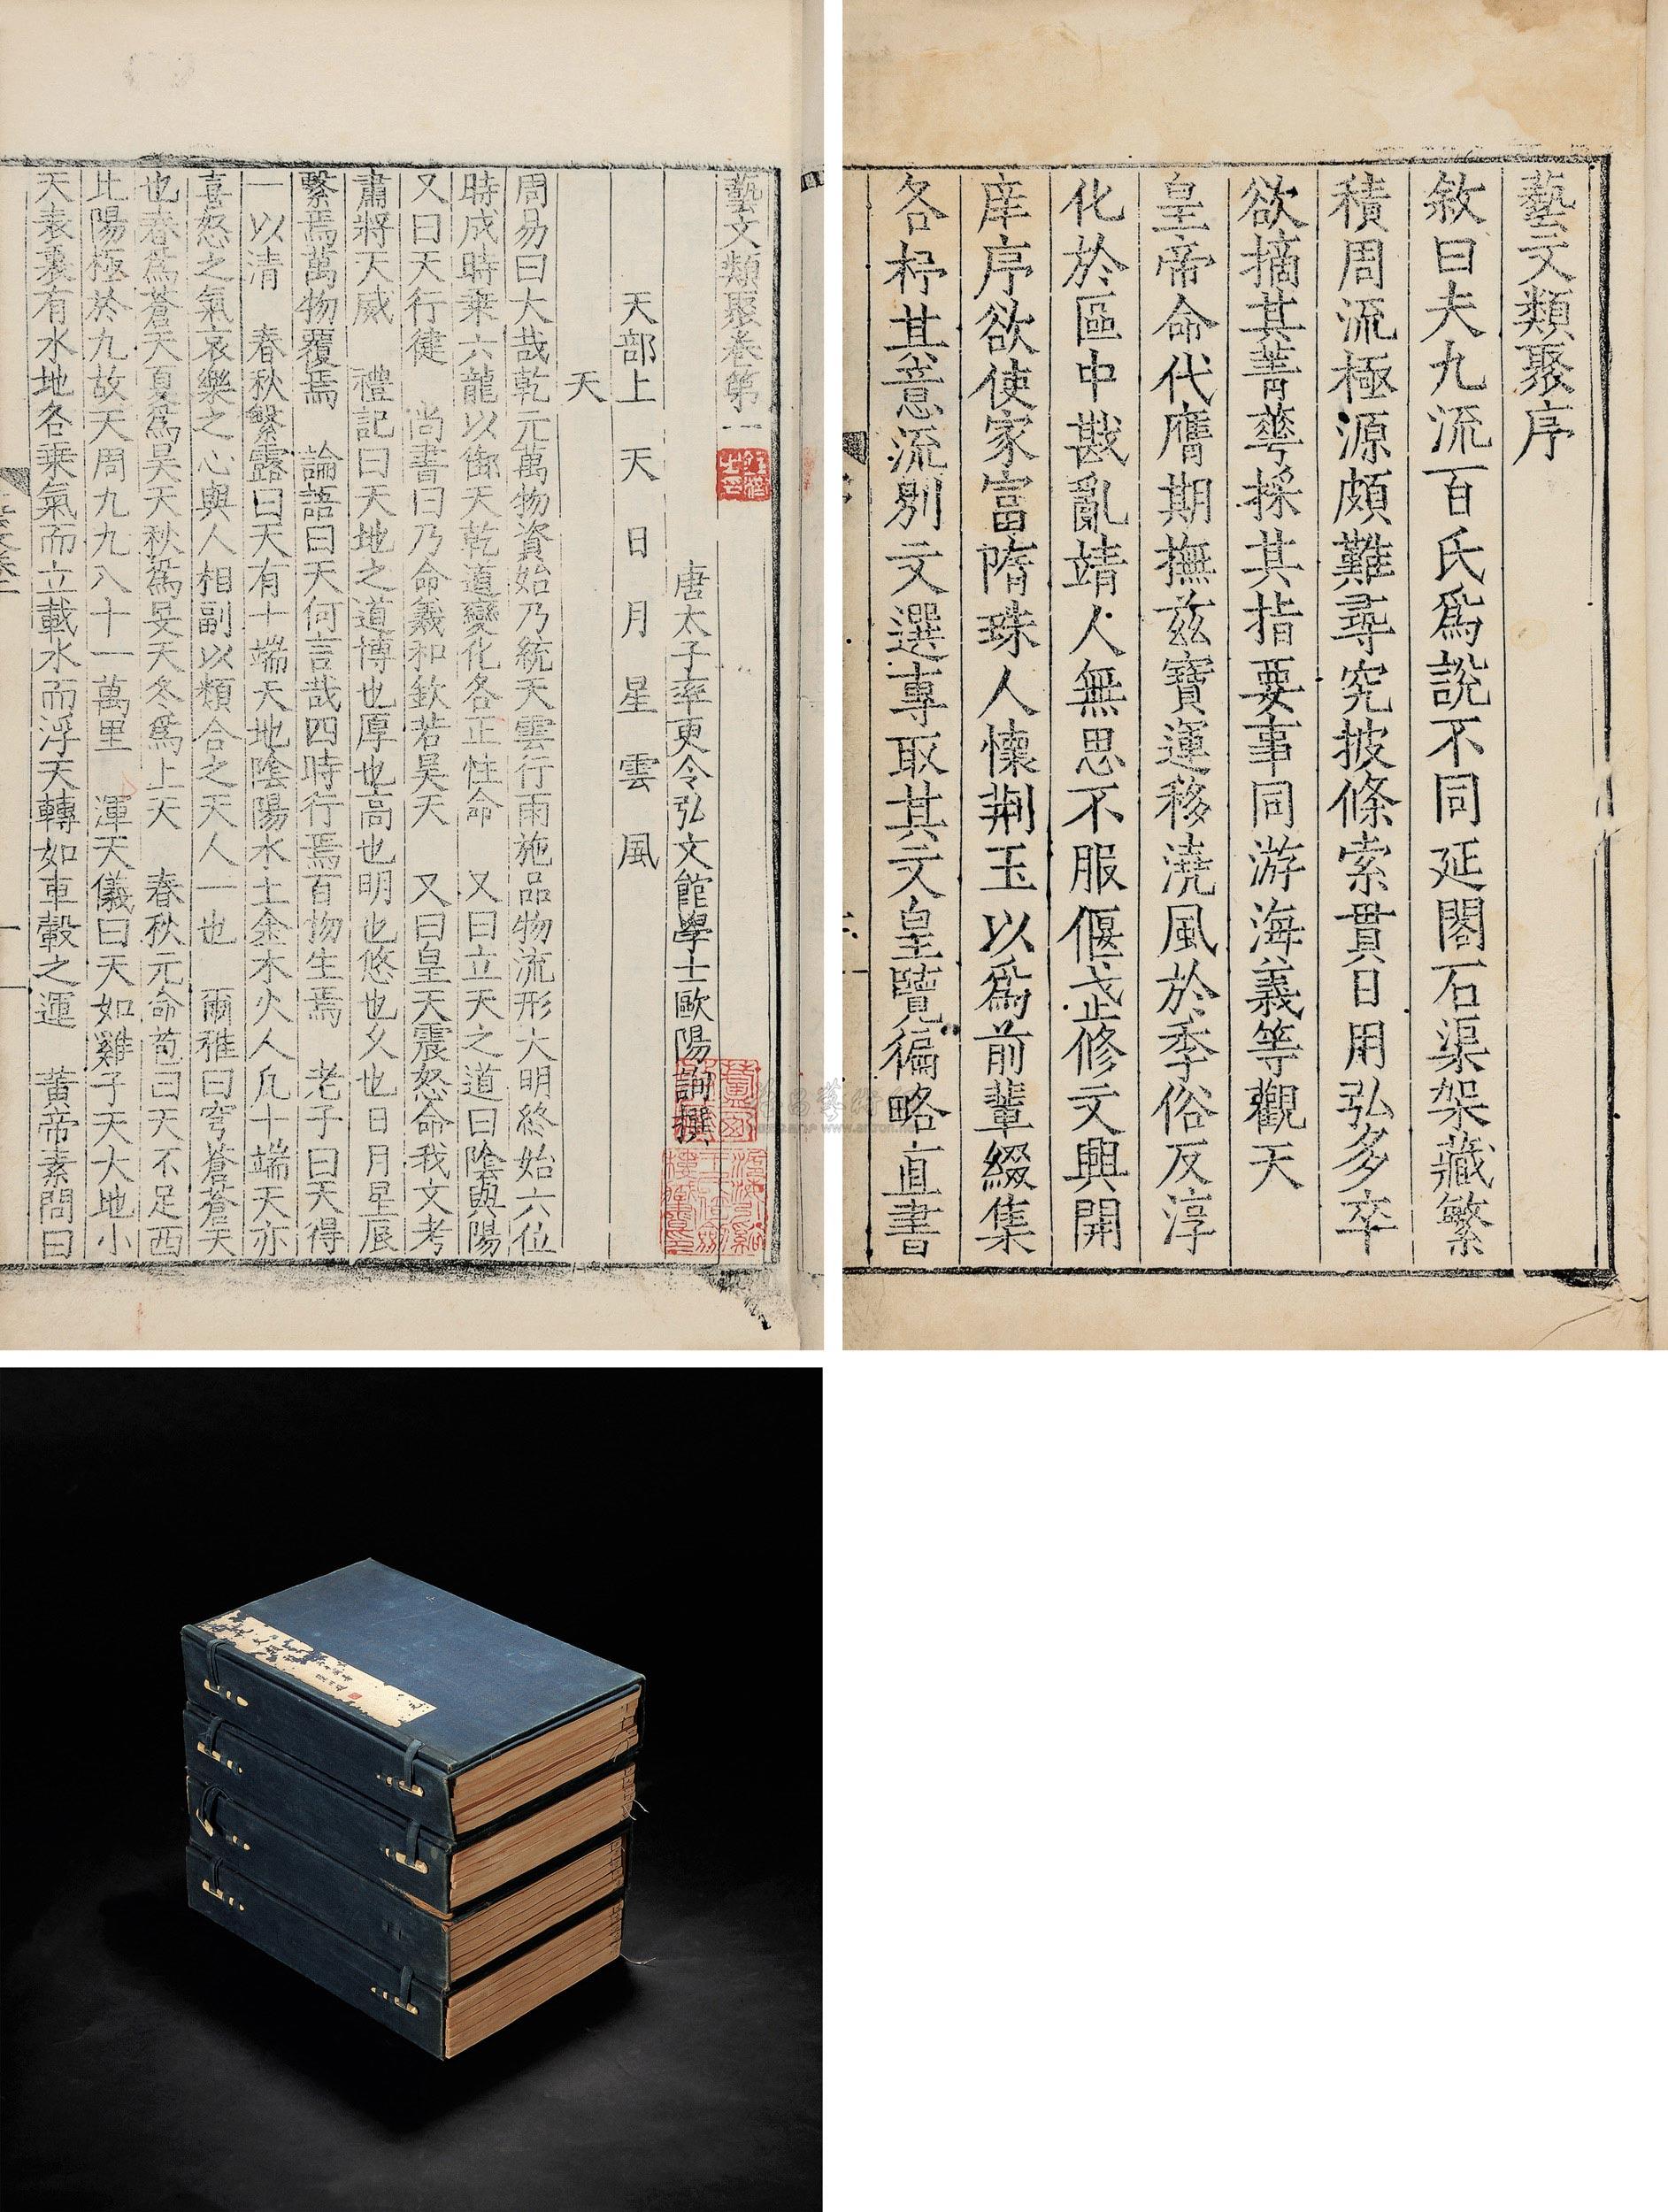 藝文類聚卷第一
唐太子率更令弘文館學士歐陽詢撰
天部上 天 日 月 星 雲 風
天
周易曰大哉乾元萬物資始乃統天雲行雨施品物流形大明終始六位
時成時乘六龍以御天乾道變化各正性命 又曰立天之道曰陰與陽
又曰天行健 尚書曰乃命羲和欽若昊天 又曰皇天震怒命我文考
肅將天威 禮記曰天地之道博也厚也高也明也悠也久也日月星辰
繫焉萬物覆焉 論語曰天何言哉四時行焉百物生焉 老子曰天得
一以清 春秋繁露曰天有十端天地陰陽水土金木火人凡十端天亦
喜怒之氣哀樂之心與人相副以類合之天人一也 爾雅曰穹蒼蒼天
也春爲蒼天夏爲昊天秋爲旻天冬爲上天 春秋元命苞曰天不足西
北陽極於九故天周九九八十一萬里 渾天儀曰天如雞子天大地小
天表裏有水地各乘氣而立載水而浮天轉如車轂之運 黃帝素問曰
藝文類聚序
敘曰夫九流百氏爲說不同延閣石渠架藏繁
積周流極源頗難尋究披條索貫日用弘多卒
欲摘其菁華採其指要事同游海義等觀天
皇帝命代膺期撫茲寶運移澆風於季俗反淳
化於區中戡亂靖人無思不服偃武修文興開
庠序欲使家富隋珠人懷荆玉以爲前輩綴集
各杼其意流別文選專取其文皇覽徧略直書
www.artron.net